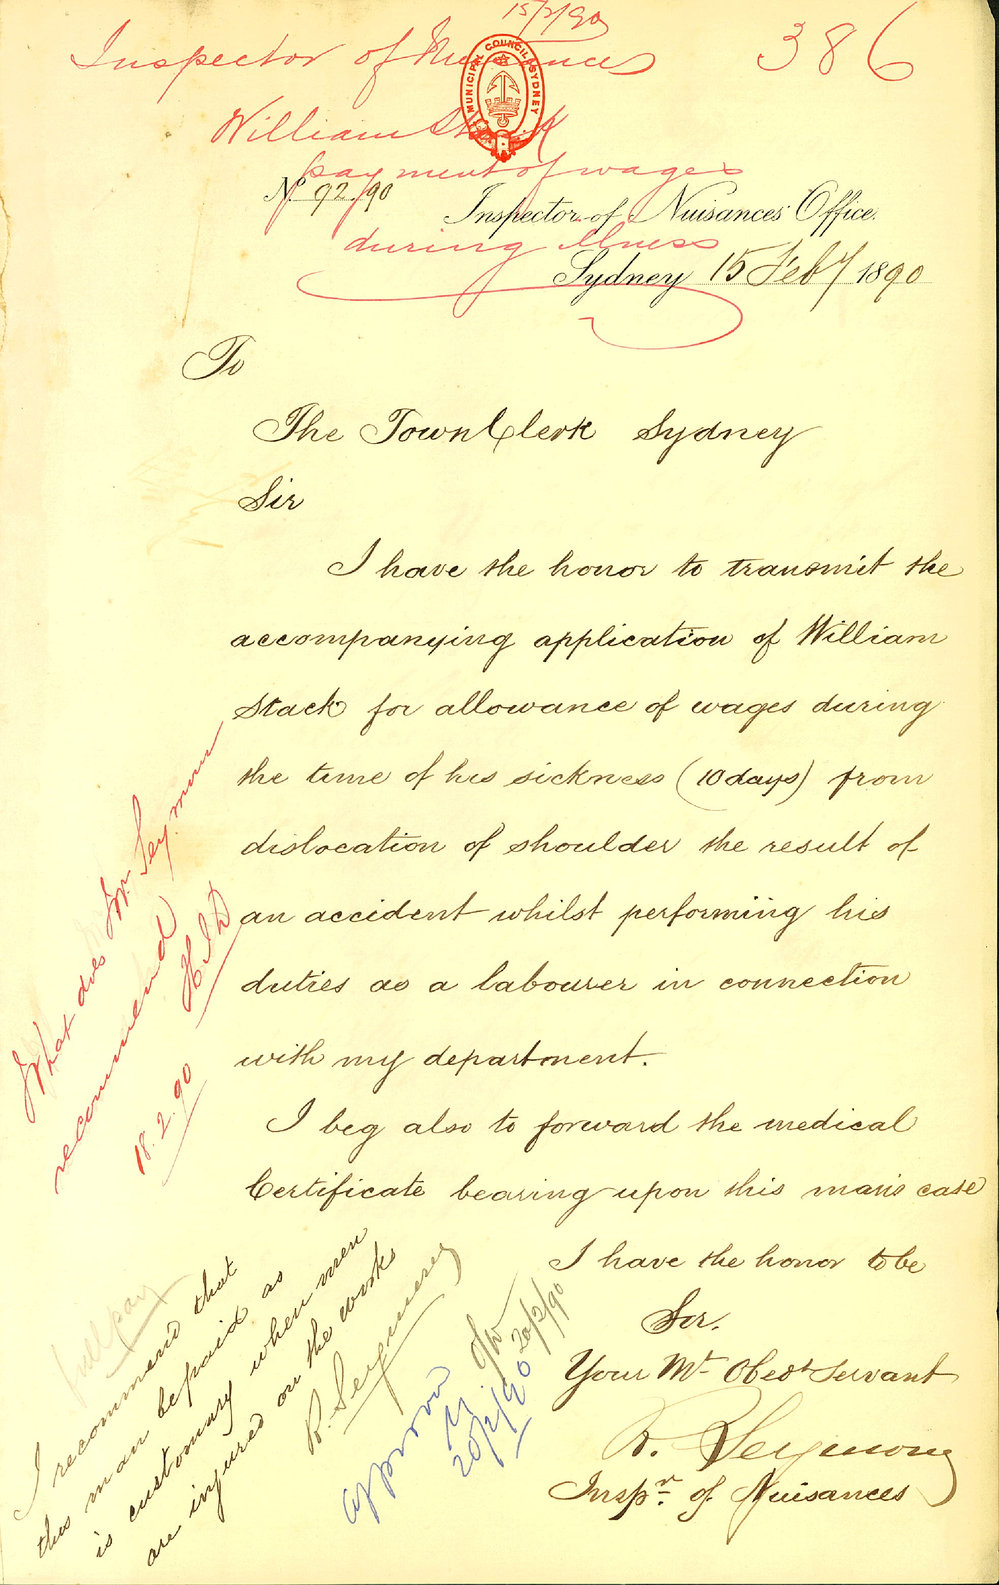 15/2/90
Inspector of Nuisances 386
MUNICIPAL COUNCIL SYDNEY
William Stack
payment of wages
No. 92/90 Inspector of Nuisances Office.
during illness
Sydney 15 Feby 1890
To
The Town Clerk Sydney
Sir
I have the honor to transmit the
accompanying application of William
Stack for allowance of wages during
the time of his sickness (10 days) from
dislocation of shoulder the result of
an accident whilst performing his
duties as a labourer in connection
with my department.
I beg also to forward the medical
Certificate bearing upon this man's case
I have the honor to be
Sir.
Your Mt Obedt Servant
R. Seymour
Inspr. of Nuisances
What does Mr Seymour
recommend
18.2.90
full pay
I recommend that
this man be paid as
is customary when men
are injured on the works
R. Seymour
approved
20/2/90
20/2/90